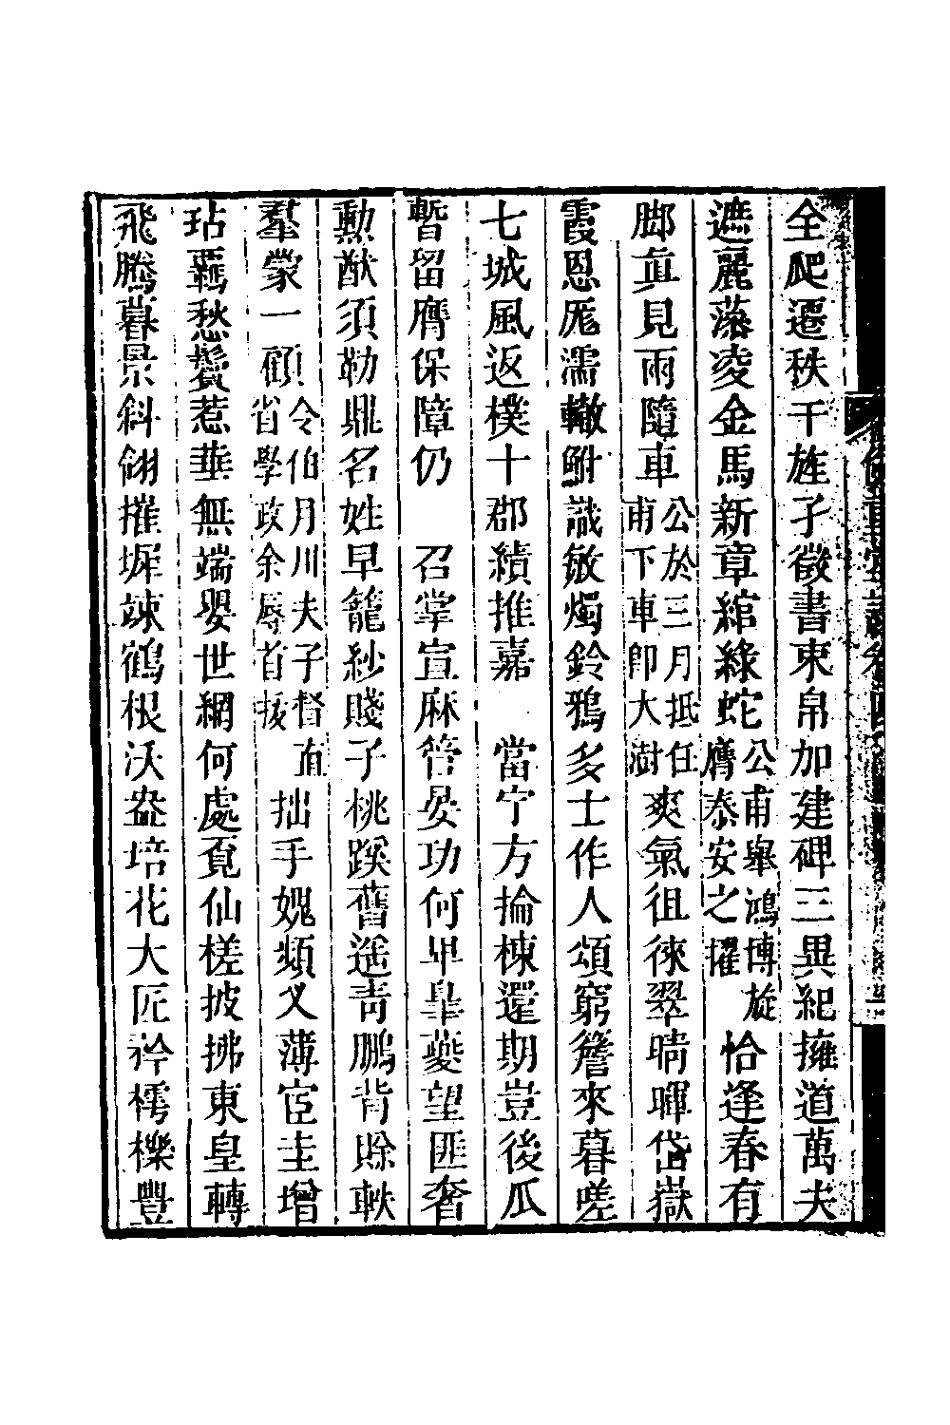 全爬遷秩干旌孑徵書束帛加建碑三異紀擁道萬夫
遮麗藻凌金馬新章綰綠蛇公甫舉鴻博旋膺泰安之擢恰逢春有
脚眞見雨隨車公於三月抵任甫下車卽大澍爽氣徂徠翠晴暉岱嶽
霞恩厖濡轍鮒識敏燭鈴鴉多士作人頌窮簷來暮嗟
七城風返樸十郡績推嘉 當宁方掄棟還期豈後瓜
暫留膺保障仍 召掌宣麻管晏功何卑皋夔望匪奢
勳猷須勒鼎名姓早籠紗賤子桃蹊舊遙靑鵬背賖軼
羣蒙一顧令伯月川夫子督直省學政余辱首拔拙手媿頻叉薄宦圭增
玷羈愁鬢惹華無端嬰世網何處覓仙槎披拂東皇轉
飛騰暮景斜翎摧墀竦鶴根沃盎培花大匠矜樗櫟豐